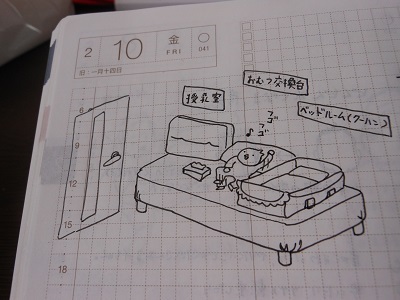 2 10 金 FRI 041
旧・一月十四日
おむつ交換台
授乳室
ベッドルーム(クーハン)
アゴ゛
♪ ゴ゛
6
9
12
15
18